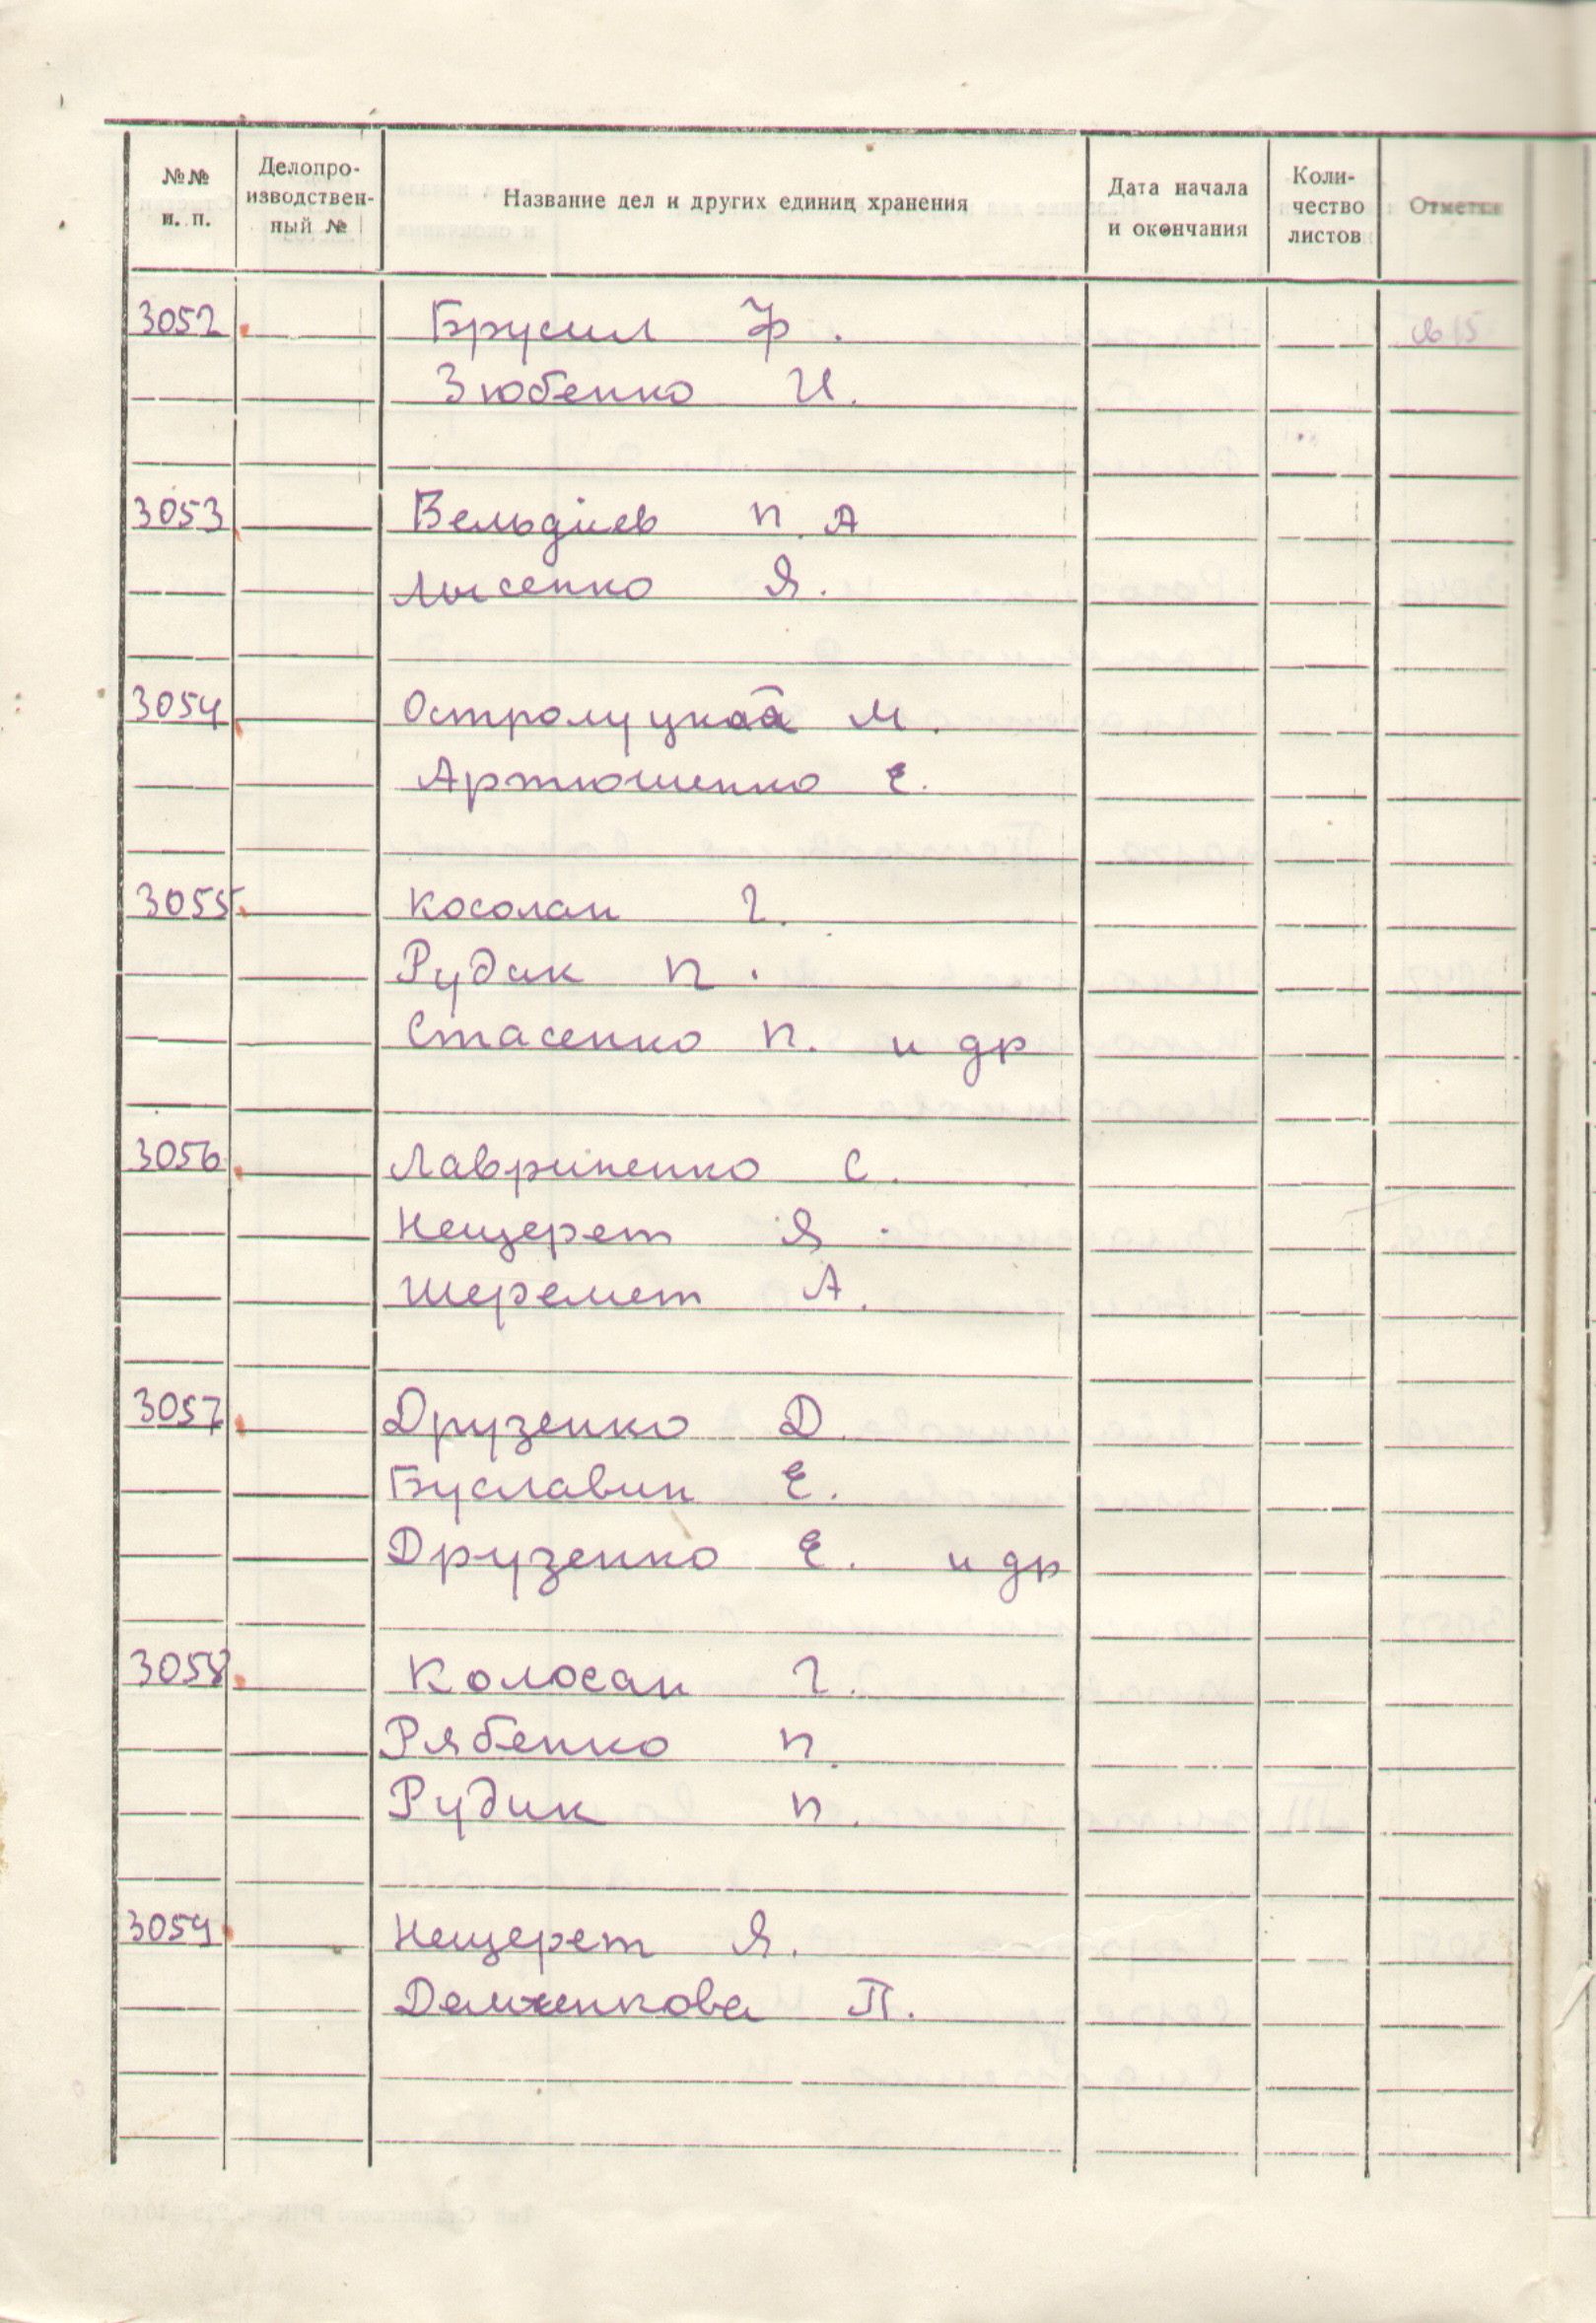 №№ п. п. Делопро-изводствен-ный № Название дел и других единиц хранения Дата начала и окончания Коли-чество листов Отметка
3052 Брусил Ф.
Зюбенко И.
3053 Вельдиев П. А
Лысенко Я.
3054 Остролуцкая М.
Артюшенко Е.
3055 Косолап Г.
Рудик П.
Стасенко П. и др
3056 Лавриненко С.
Нещерет Я.
Шеремет А.
3057 Друзенко Д.
Буславин Е.
Друзенко Е. и др
3058 Колосап Г.
Рябенко П.
Рудик П.
3059 Нещерет Я.
Демженкова П.